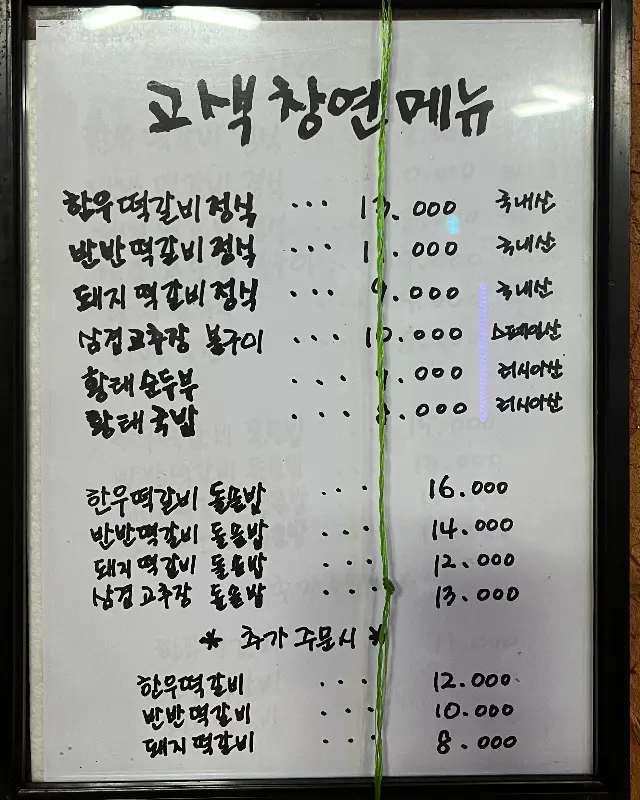 고색창연 메뉴
한우떡갈비정식 ... 13.000 국내산
반반떡갈비정식 ... 국내산
돼지떡갈비정식 ... 9.000 국내산
삼겹고추장 불구이 ... 10.000 스페인산
황태순두부 ... 러시아산
황태국밥 ... 8.000 러시아산
한우떡갈비 돌솥밥 ... 16.000
반반떡갈비 돌솥밥 ... 14.000
돼지떡갈비 돌솥밥 ... 12.000
삼겹고추장 돌솥밥 ... 13.000
* 추가 주문시 *
한우떡갈비 ... 12.000
반반떡갈비 ... 10.000
돼지떡갈비 ... 8.000